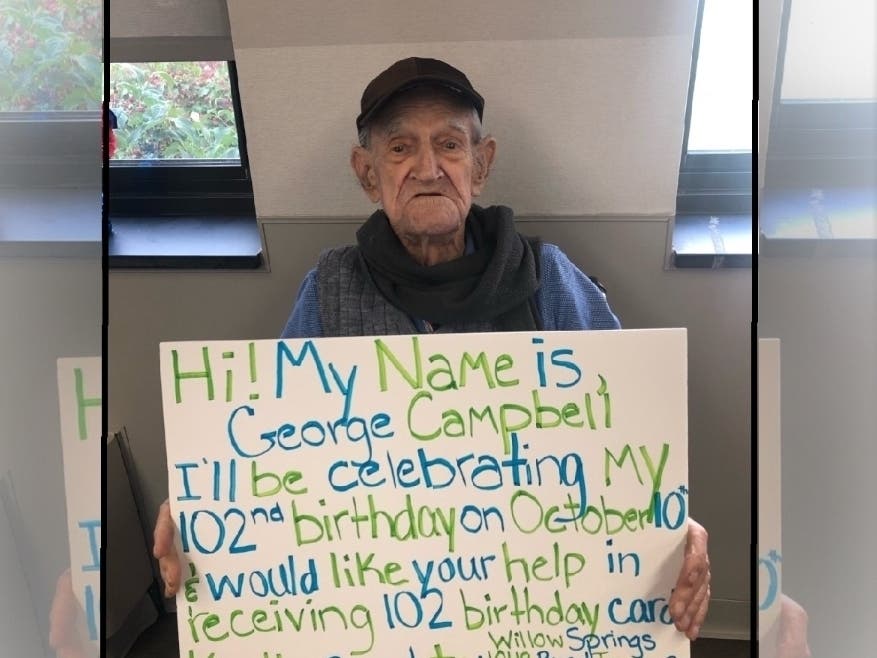 Hi! My Name is,
George Campbell
I'll be celebrating My
102nd birthday on October 10th
& would like your help in
receiving 102 birthday card
Willow Springs